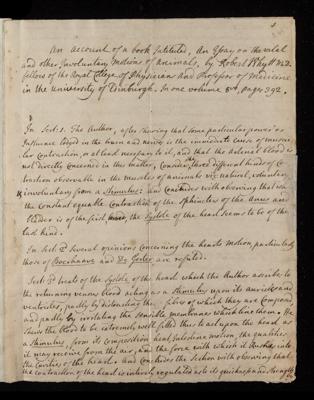 An account of a book Intituled, An Essay on the vital
and other Involuntary Motions of animals, by Robert Whytt M.D.
fellow of the Royal College of Physicians and Professor of Medicine
in the University of Edinburgh. In one volume 8vo. pages 392.
In Sect: 1. The Author, after shewing that some particular power or
Influence lodged in the brain and nerves is the immediate cause of muscu-
lar Contraction, or at least necessary to it, and that the arterial blood is
not directly concerned in this matter, Considers the three different kinds of Co-
traction observable in the muscles of animals viz: natural, voluntary
& involuntary from a Stimulus: and Concludes with observing that
the constant equable Contraction of the Sphincters of the Anus and
Bladder is of the first kind, the Systole of the heart seems to be of the
last kind.
In Sect: 2d several opinions concerning the hearts Motion, particularly
those of Boerhaave and Dr. Gorter are refuted.
Sect: 3d treats of the Systole of the heart which the Author ascribes to
the returning venous blood acting as a Stimulus upon its auricles and
ventricles, partly by distending the fibres of which they are Composed
and partly by irritating the sensible membranes which line them. He
shews the blood to be extremely well fitted thus to act upon the heart as
a Stimulus, from its composition, heat, Intestine motion, the qualities
it may receive from the air, and the force with which it rushes into
the Cavities of the heart. And concludes the Section with observing that
the contraction of the heart is intirely regulated as to its quickness and strength